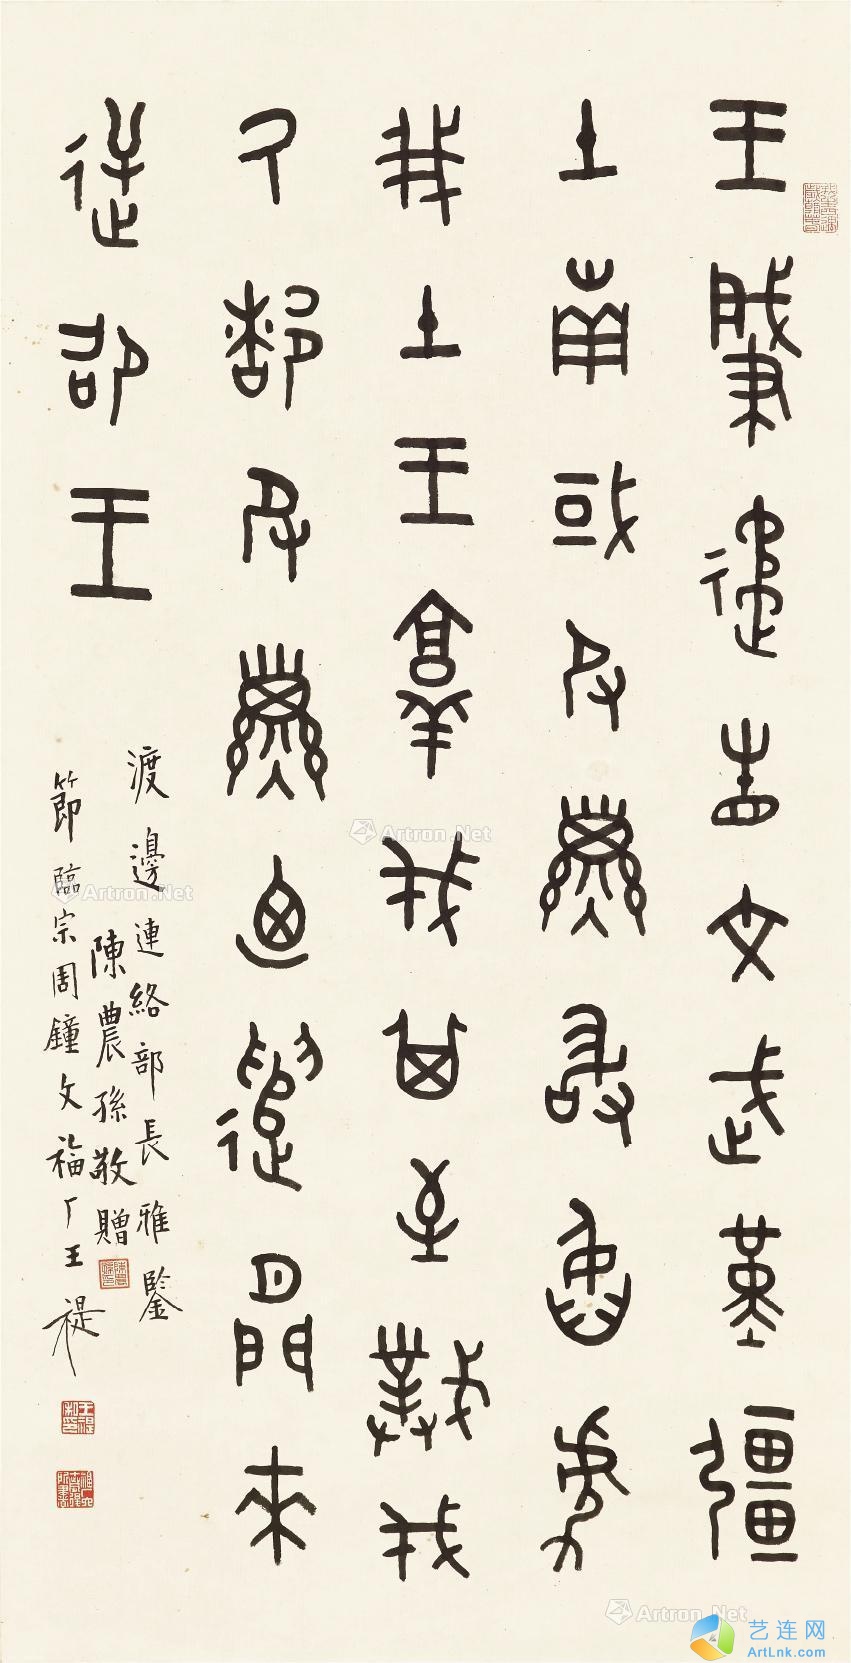 王肇遹省文武堇彊
土南或𠬝孳敢臽虐
我土王𦎫伐其至𢿢伐
厥都𠬝孳廼遣閒來
逆卲王
渡邊連絡部長雅鑒
陳農孫敬贈
節臨宗周鐘文福厂王禔
王禔私印
Artron.Net
Artron.Net
Artron.Net
艺连网
ArtLnk.com